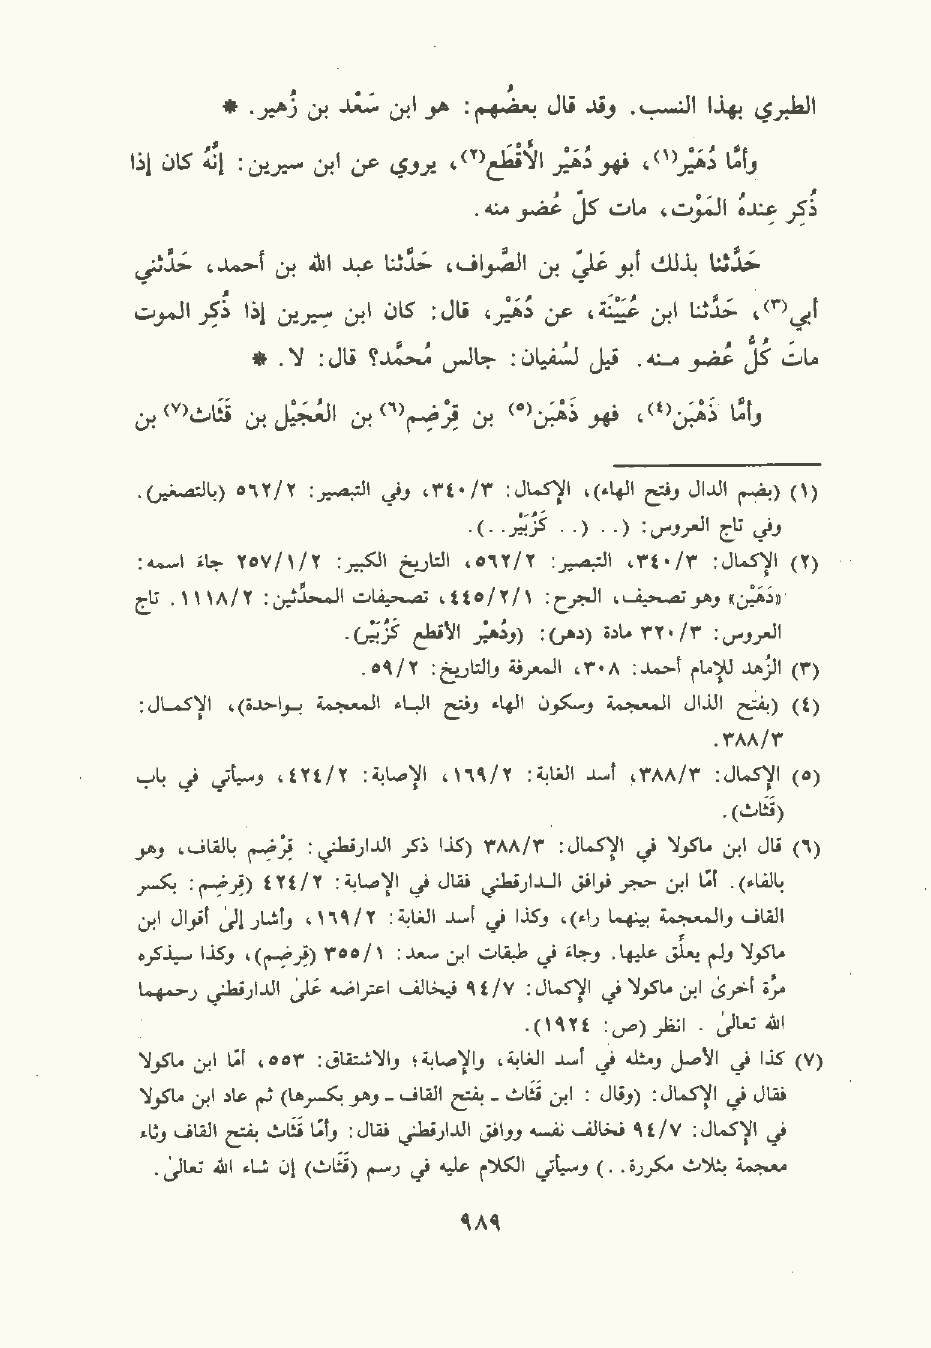 الطبري بهذا النسب. وقد قال بعضُهم: هو ابن سَعْد بن زُهير. *
وأمّا دُهَيْر(١)، فهو دُهَيْر الأَقْطَع(٢)، يروي عن ابن سيرين: إنَّهُ كان إذا
ذُكِر عِندهُ المَوْت، مات كلّ عُضو منه.
حَدَّثنا بذلك أبو عَليّ بن الصَّواف، حَدَّثنا عبد الله بن أحمد، حَدَّثني
أبي(٣)، حَدَّثنا ابن عُيَيْنَة، عن دُهَيْر، قال: كان ابن سِيرين إذا ذُكِر الموت
ماتَ كُلّ عُضو منه. قيل لسُفيان: جالس مُحمَّد؟ قال: لا. *
وأمّا ذَهْبَن(٤)، فهو ذَهْبَن(٥) بن قِرْضِم(٦) بن العُجَيْل بن قَثَاث(٧) بن
(١) (بضم الدال وفتح الهاء)، الإكمال: ٣٤٠/٣، وفي التبصير: ٥٦٢/٢ (بالتصغير).
وفي تاج العروس: (.. (.. كزُبَيْر..).
(٢) الإكمال: ٣٤٠/٣، التبصير: ٥٦٢/٢، التاريخ الكبير: ٢٥٧/١/٢ جاءَ اسمه:
«دَهَيْن» وهو تصحيف، الجرح: ٤٤٥/٢/١، تصحيفات المحدّثين: ١١١٨/٢. تاج
العروس: ٣٢٠/٣ مادة (دهر): (ودُهَيْر الأقطع كزُبَيْر).
(٣) الزُهد للإمام أحمد: ٣٠٨، المعرفة والتاريخ: ٥٩/٢.
(٤) (بفتح الذال المعجمة وسكون الهاء وفتح الباء المعجمة بواحدة)، الإكمال:
٣٨٨/٣.
(٥) الإكمال: ٣٨٨/٣، أسد الغابة: ١٦٩/٢، الإصابة: ٤٢٤/٢، وسيأتي في باب
(قَثَاث).
(٦) قال ابن ماكولا في الإكمال: ٣٨٨/٣ (كذا ذكر الدارقطني: قِرْضِم بالقاف، وهو
بالفاء). أمّا ابن حجر فوافق الدارقطني فقال في الإصابة: ٤٢٤/٢ (قرضِم): بكسر
القاف والمعجمة بينهما راء)، وكذا في أسد الغابة: ١٦٩/٢، وأشار إلى أقوال ابن
ماكولا ولم يعلّق عليها. وجاءَ في طبقات ابن سعد: ٣٥٥/١ (قرضِم)، وكذا سيذكره
مرّة أخرى ابن ماكولا في الإكمال: ٩٤/٧ فيخالف اعتراضه على الدارقطني رحمهما
الله تعالى - انظر (ص: ١٩٢٤).
(٧) كذا في الأصل ومثله في أسد الغابة، والإصابة؛ والاشتقاق: ٥٥٣، أمّا ابن ماكولا
فقال في الإكمال: (وقال : ابن قَثَاث - بفتح القاف - وهو بكسرها) ثم عاد ابن ماكولا
في الإكمال: ٩٤/٧ فخالف نفسه ووافق الدارقطني فقال: وأمّا قَثَاث بفتح القاف وثاء
معجمة بثلاث مكررة..) وسيأتي الكلام عليه في رسم (قَثَاث) إن شاء الله تعالى.
٩٨٩